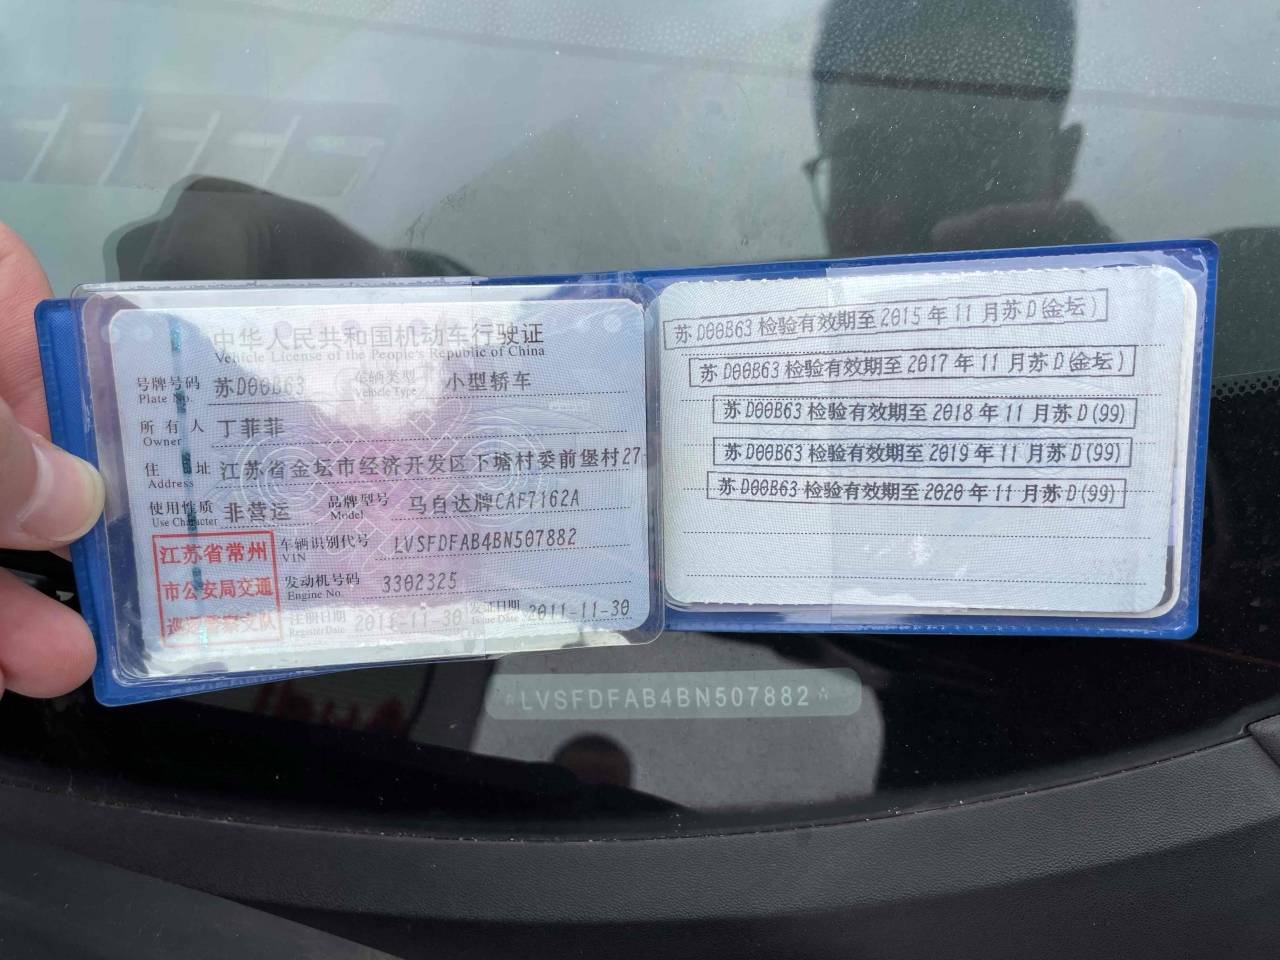 中华人民共和国机动车行驶证
Vehicle License of the People's Republic of China
号牌号码 苏D00B63 车辆类型 小型轿车
Plate No. Vehicle Type
所有人 丁菲菲
Owner
住址 江苏省金坛市经济开发区下塘村委前堡村27
Address
使用性质 非营运 品牌型号 马自达牌CAF7162A
Use Character Model
江苏省常州
市公安局交通
巡逻警察支队
车辆识别代号 LVSFDFAB4BN507882
VIN
发动机号码 3302325
Engine No.
注册日期 2011-11-30 发证日期 2011-11-30
Register Date Issue Date
苏D00B63检验有效期至2015年11月苏D(金坛)
苏D00B63检验有效期至2017年11月苏D(金坛)
苏D00B63检验有效期至2018年11月苏D(99)
苏D00B63检验有效期至2019年11月苏D(99)
苏D00B63检验有效期至2020年11月苏D(99)
☆LVSFDFAB4BN507882☆